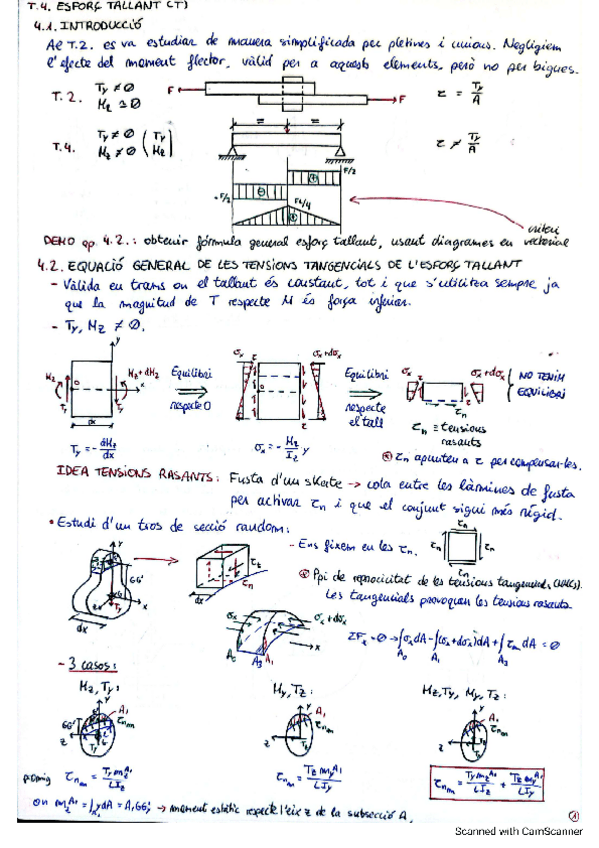 T.4. ESFORÇ TALLANT (T)
4.1. INTRODUCCIÓ
Al T.2. es va estudiar de manera simplificada per pletines i unions. Negligiem
l'efecte del moment flector, vàlid per a aquests elements, però no per bigues.
T.2. Ty ≠ 0
Mz ≃ 0
F F
τ = Ty/A
T.4. Ty ≠ 0 (Ty
Mz ≠ 0 Mz)
= =
τ ≠ Ty/A
F/2
-F/2
FL/4
DEMO ap. 4.2.: obtenir fórmula general esforç tallant, usant diagrames en vectorial
4.2. EQUACIÓ GENERAL DE LES TENSIONS TANGENCIALS DE L'ESFORÇ TALLANT
- Vàlida en trams on el tallant és constant, tot i que s'utilitza sempre ja
que la magnitud de T respecte M és força inferior.
- Ty, Mz ≠ 0.
Mz Mz+dMz x y Ty Ty dx
Equilibri
respecte O
σx σx+dσx
Equilibri
respecte
el tall
σx σx+dσx
NO TENIM
EQUILIBRI
τn
Ty = - dMz/dx
σx = - Mz/Iz y
τn ≡ tensions
rasants
* τn apunten a τ per compensar-les.
IDEA TENSIONS RASANTS: Fusta d'un skate → cola entre les làmines de fusta
per activar τn i que el conjunt sigui més rígid.
• Estudi d'un tros de secció random:
- Ens fixem en les τn.
* Ppi de reprocicitat de les tensions tangencials
Les tangencials provoquen les tensions rasants.
ΣFx = 0 → ∫σx dA - ∫(σx+dσx)dA + ∫τnm dA = 0
A0 A1 A3
- 3 casos:
Mz, Ty:
My, Tz:
Mz, Ty, My, Tz:
τnm = Ty mzA1 / LIz
τnm = Tz myA1 / LIy
τnm = Ty mzA1 / LIz + Tz myA1 / LIy
on mzA1 = ∫ydA = A1GG'y → moment estàtic respecte l'eix z de la subsecció A1
1
Scanned with CamScanner